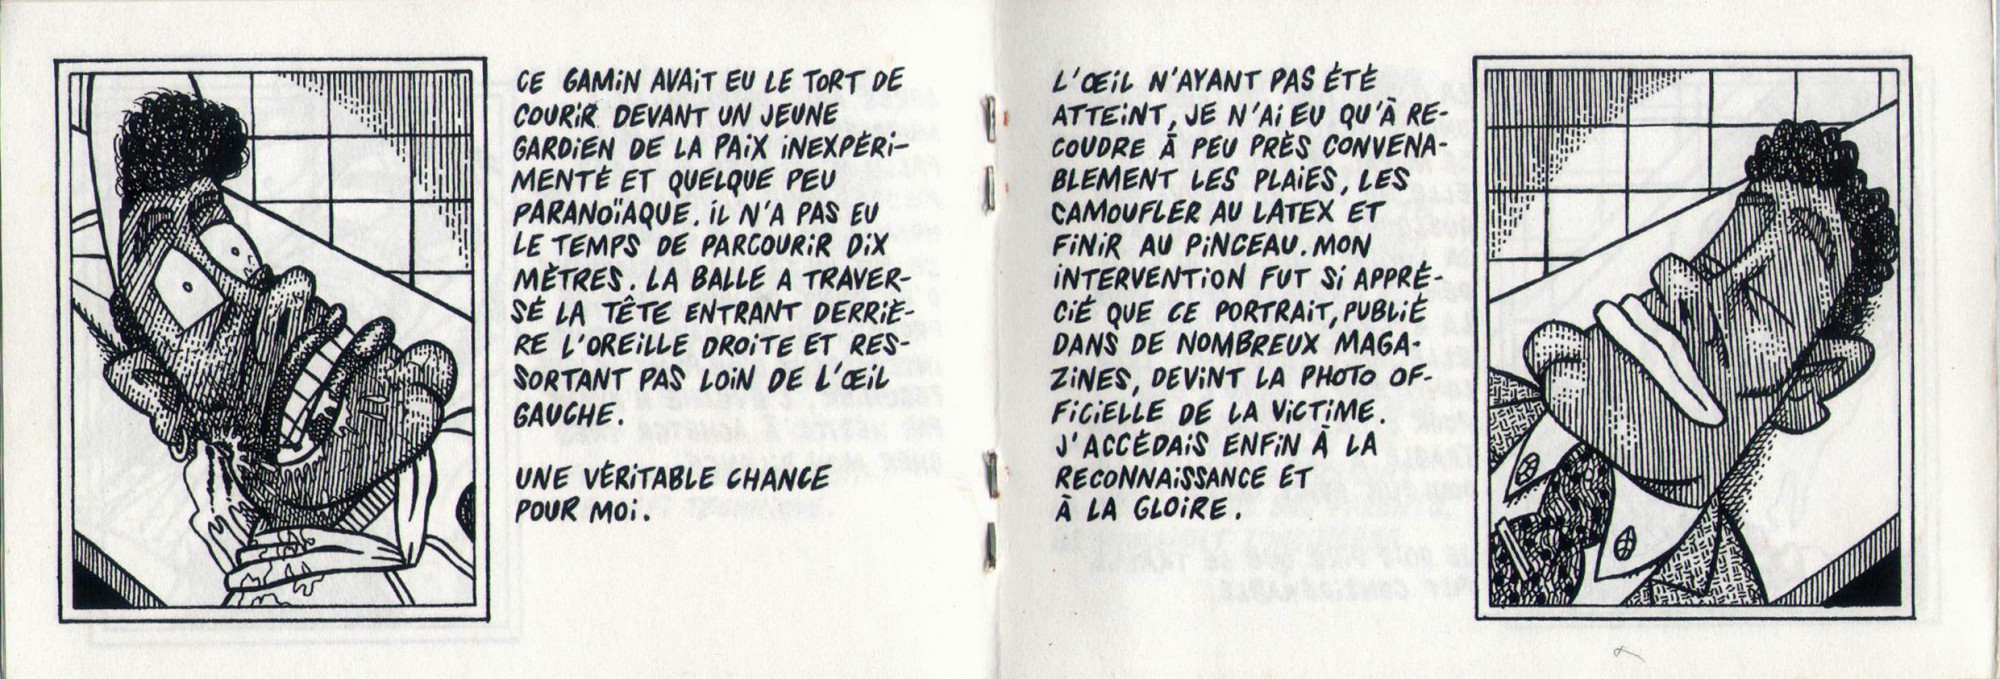 CE GAMIN AVAIT EU LE TORT DE
COURIR DEVANT UN JEUNE
GARDIEN DE LA PAIX INEXPÉRI-
MENTÉ ET QUELQUE PEU
PARANOÏAQUE. IL N'A PAS EU
LE TEMPS DE PARCOURIR DIX
MÈTRES. LA BALLE A TRAVER-
SÉ LA TÊTE ENTRANT DERRIÈ-
RE L'OREILLE DROITE ET RES-
SORTANT PAS LOIN DE L'ŒIL
GAUCHE.
UNE VÉRITABLE CHANCE
POUR MOI.
L'ŒIL N'AYANT PAS ÉTÉ
ATTEINT, JE N'AI EU QU'À RE-
COUDRE À PEU PRÈS CONVENA-
BLEMENT LES PLAIES, LES
CAMOUFLER AU LATEX ET
FINIR AU PINCEAU. MON
INTERVENTION FUT SI APPRÉ-
CIÉ QUE CE PORTRAIT, PUBLIÉ
DANS DE NOMBREUX MAGA-
ZINES, DEVINT LA PHOTO OF-
FICIELLE DE LA VICTIME.
J'ACCÉDAIS ENFIN À LA
RECONNAISSANCE ET
À LA GLOIRE.